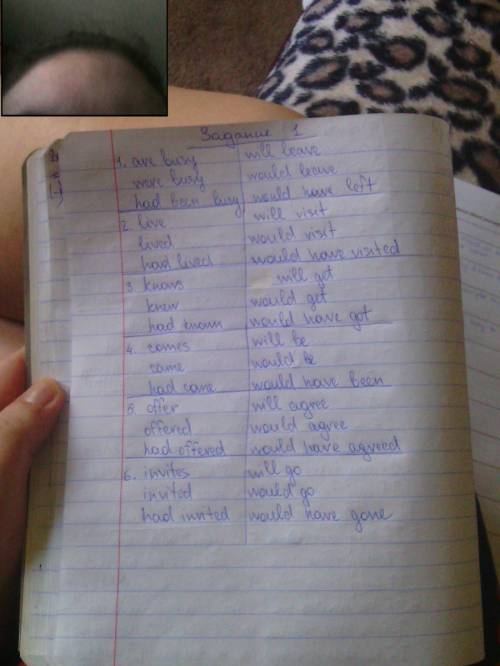 Задание 1
1. are busy will leave
were busy would leave
had been busy would have left
2. live will visit
lived would visit
had lived would have visited
3. knows will get
knew would get
had known would have got
4. comes will be
came would be
had come would have been
5. offer will agree
offered would agree
had offered would have agreed
6. invites will go
invited would go
had invited would have gone